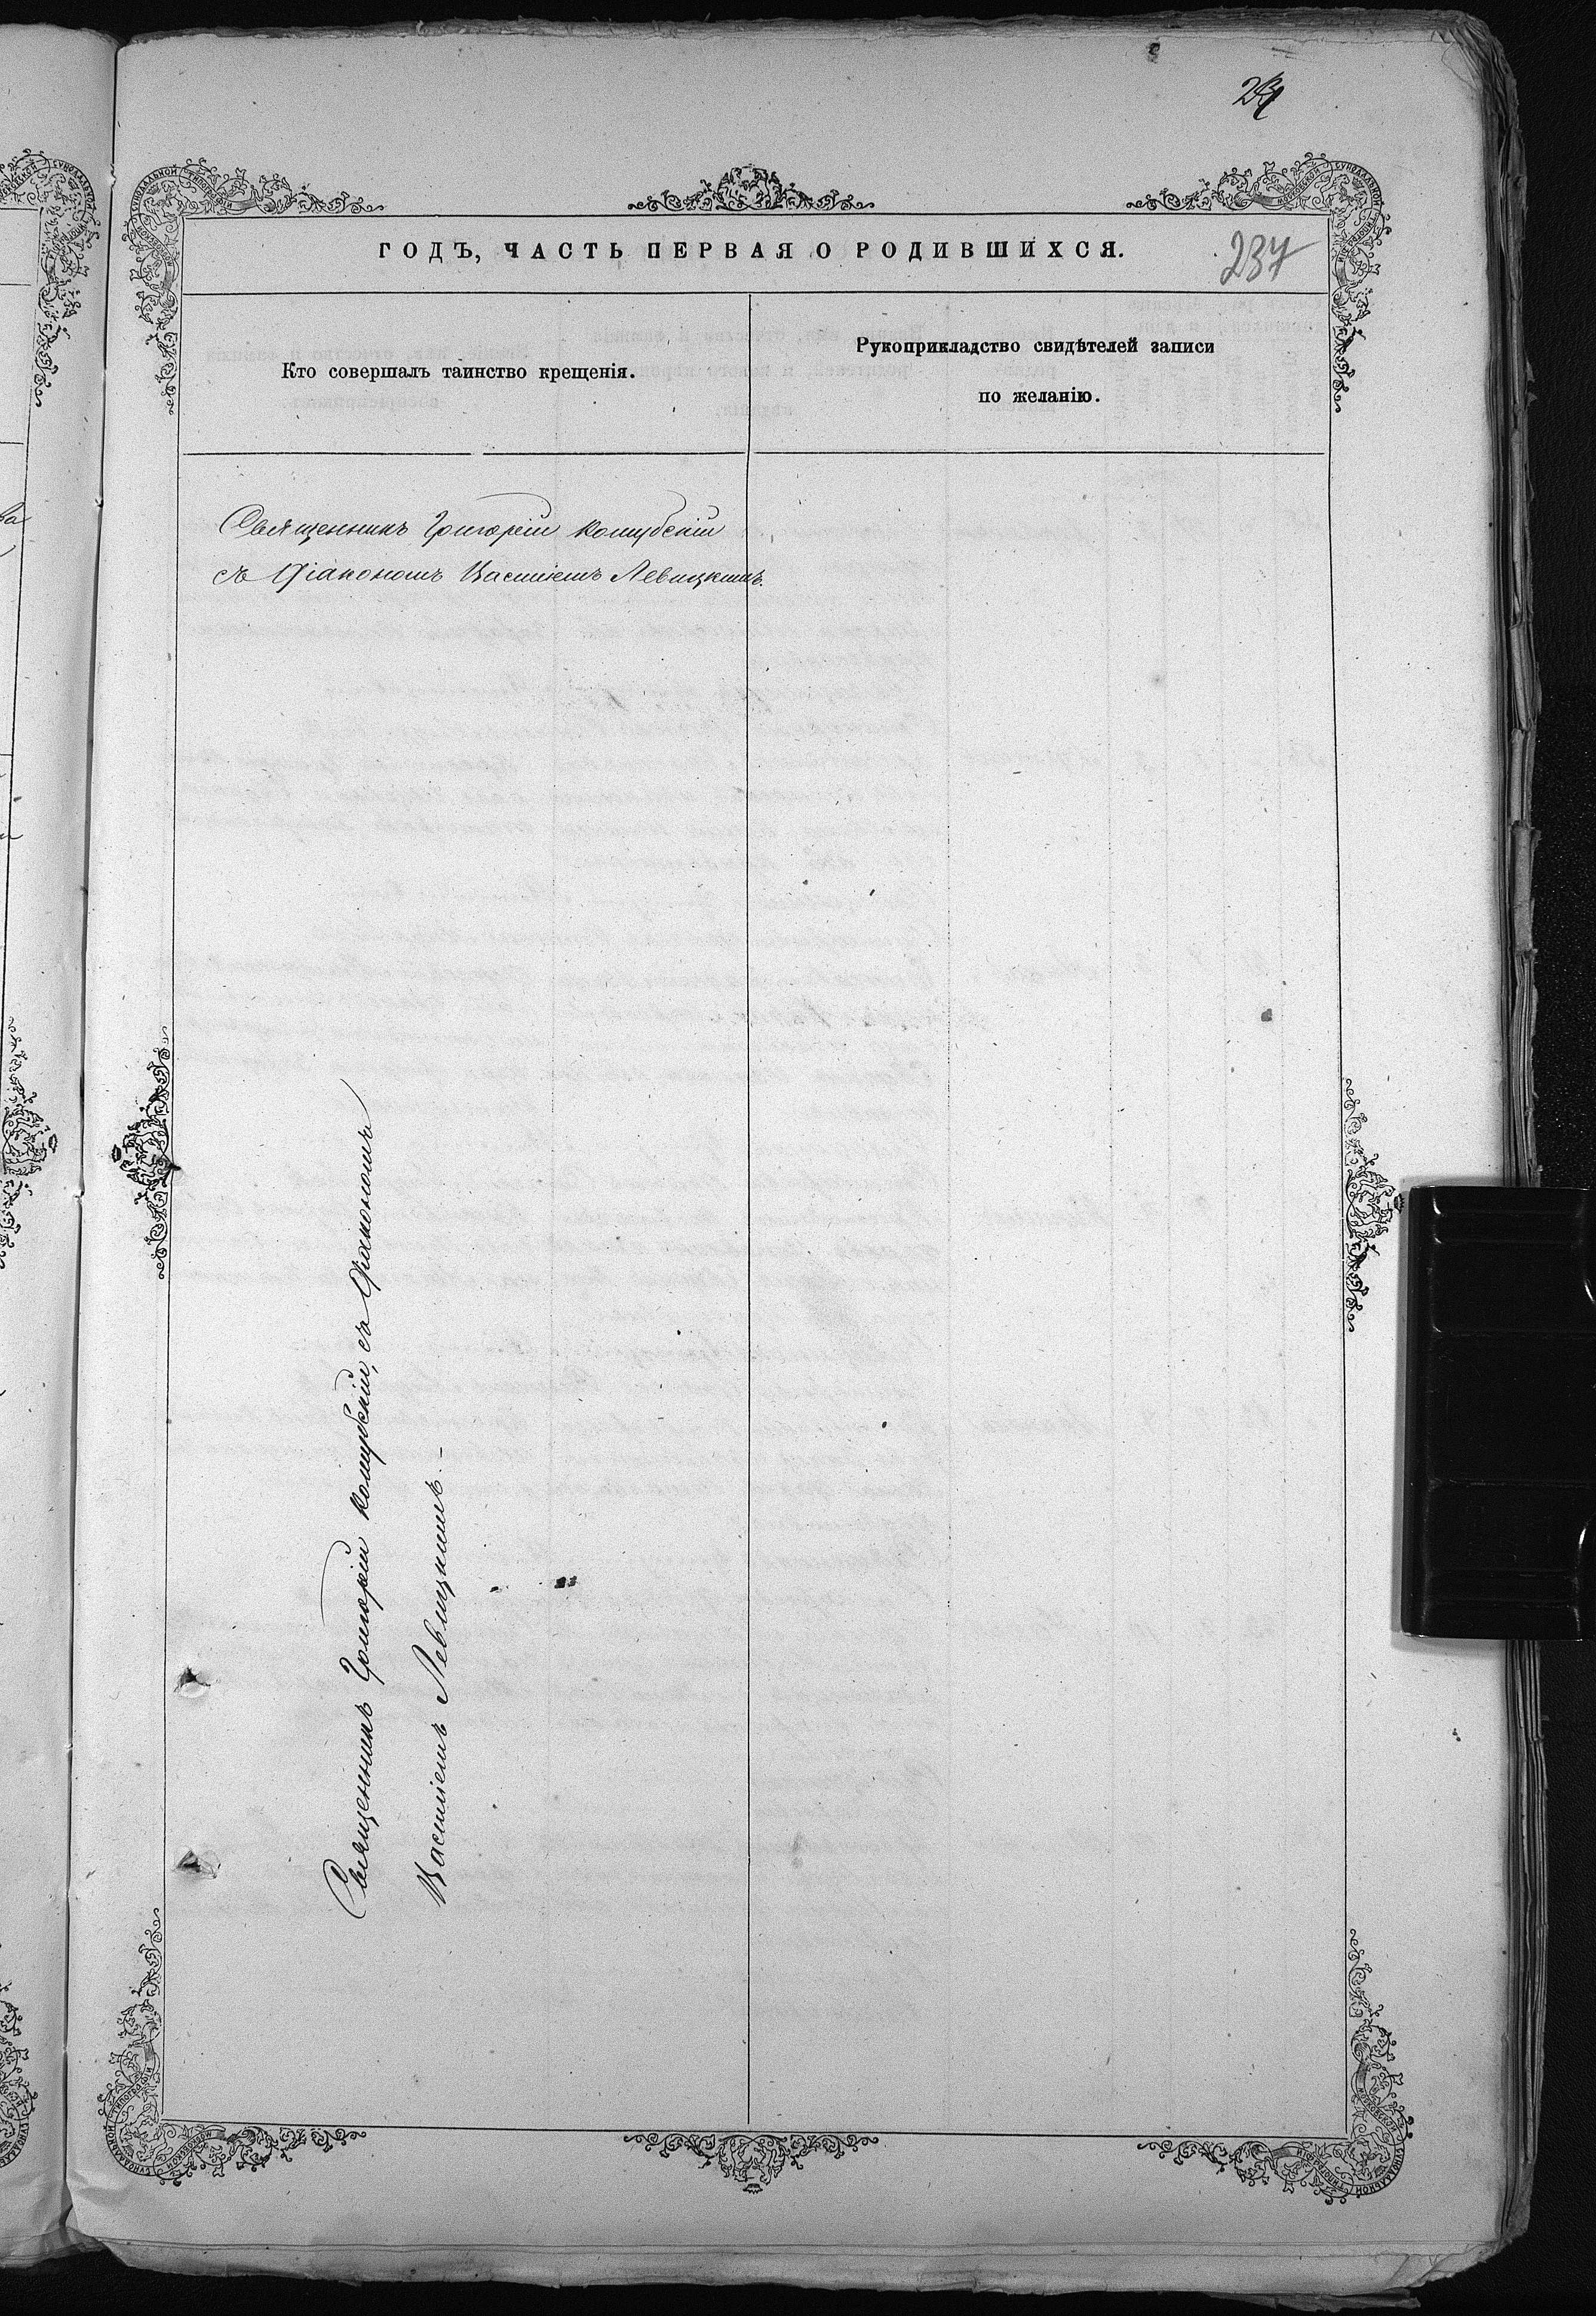 237
ГОДЪ, ЧАСТЬ ПЕРВАЯ О РОДИВШИХСЯ.
Кто совершалъ таинство крещенія.
Рукоприкладство свидѣтелей записи
по желанію.
Священникъ Григорій Коцубскій
съ Діакономъ Василіемъ Левицкимъ.
Священникъ Григорій Коцубскій, съ Діакономъ
Василіемъ Левицкимъ. -